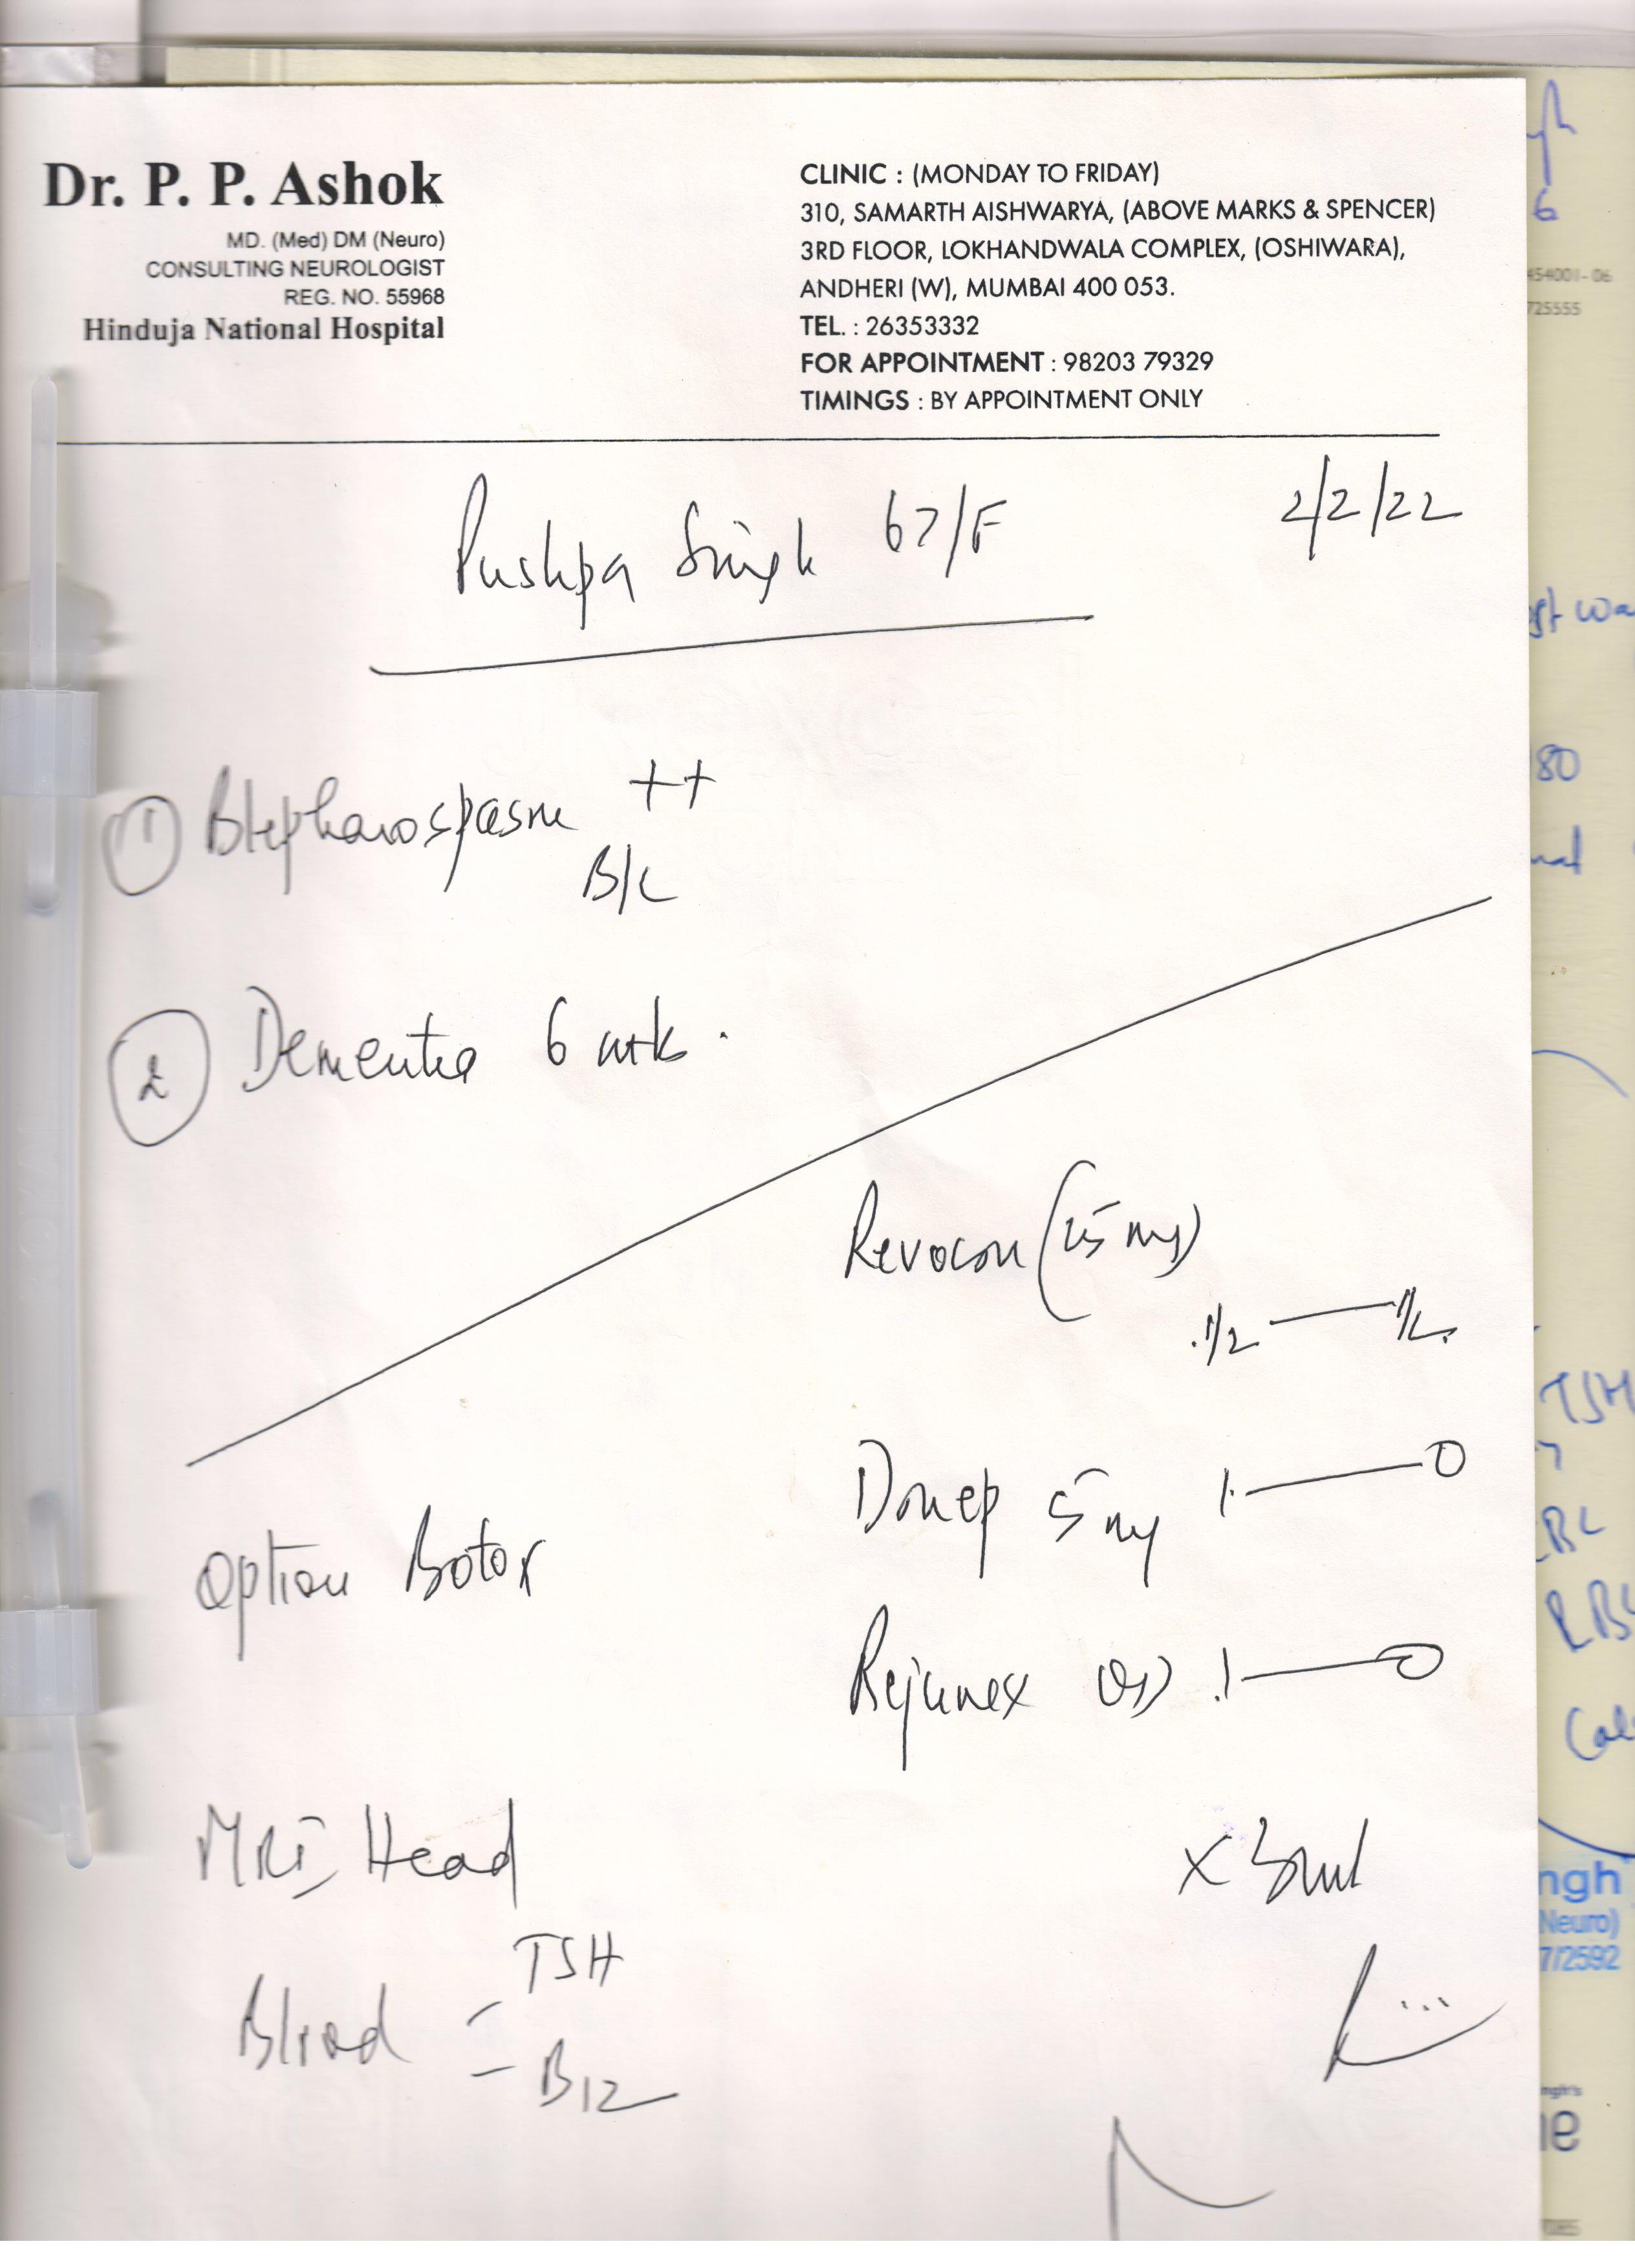 Dr. P. P. Ashok
MD. (Med) DM (Neuro)
CONSULTING NEUROLOGIST
REG. NO. 55968
Hinduja National Hospital
CLINIC : (MONDAY TO FRIDAY)
310, SAMARTH AISHWARYA, (ABOVE MARKS & SPENCER)
3RD FLOOR, LOKHANDWALA COMPLEX, (OSHIWARA),
ANDHERI (W), MUMBAI 400 053.
TEL. : 26353332
FOR APPOINTMENT : 98203 79329
TIMINGS : BY APPOINTMENT ONLY
Pushpa Singh 67/F
2/2/22
① Blepharospasm ++
B/L
② Dementia 6 mths.
Revocon (25 mg)
1/2 — 1/2
Donep 5 mg 1 — 0
Option Botox
Rejunex OD 1 — 0
MRI Head
x 3
Blood = TSH
- B12
6
454001-06
725555
80
TSH
RBS
ngh
(Neuro)
7/2592
ngh's